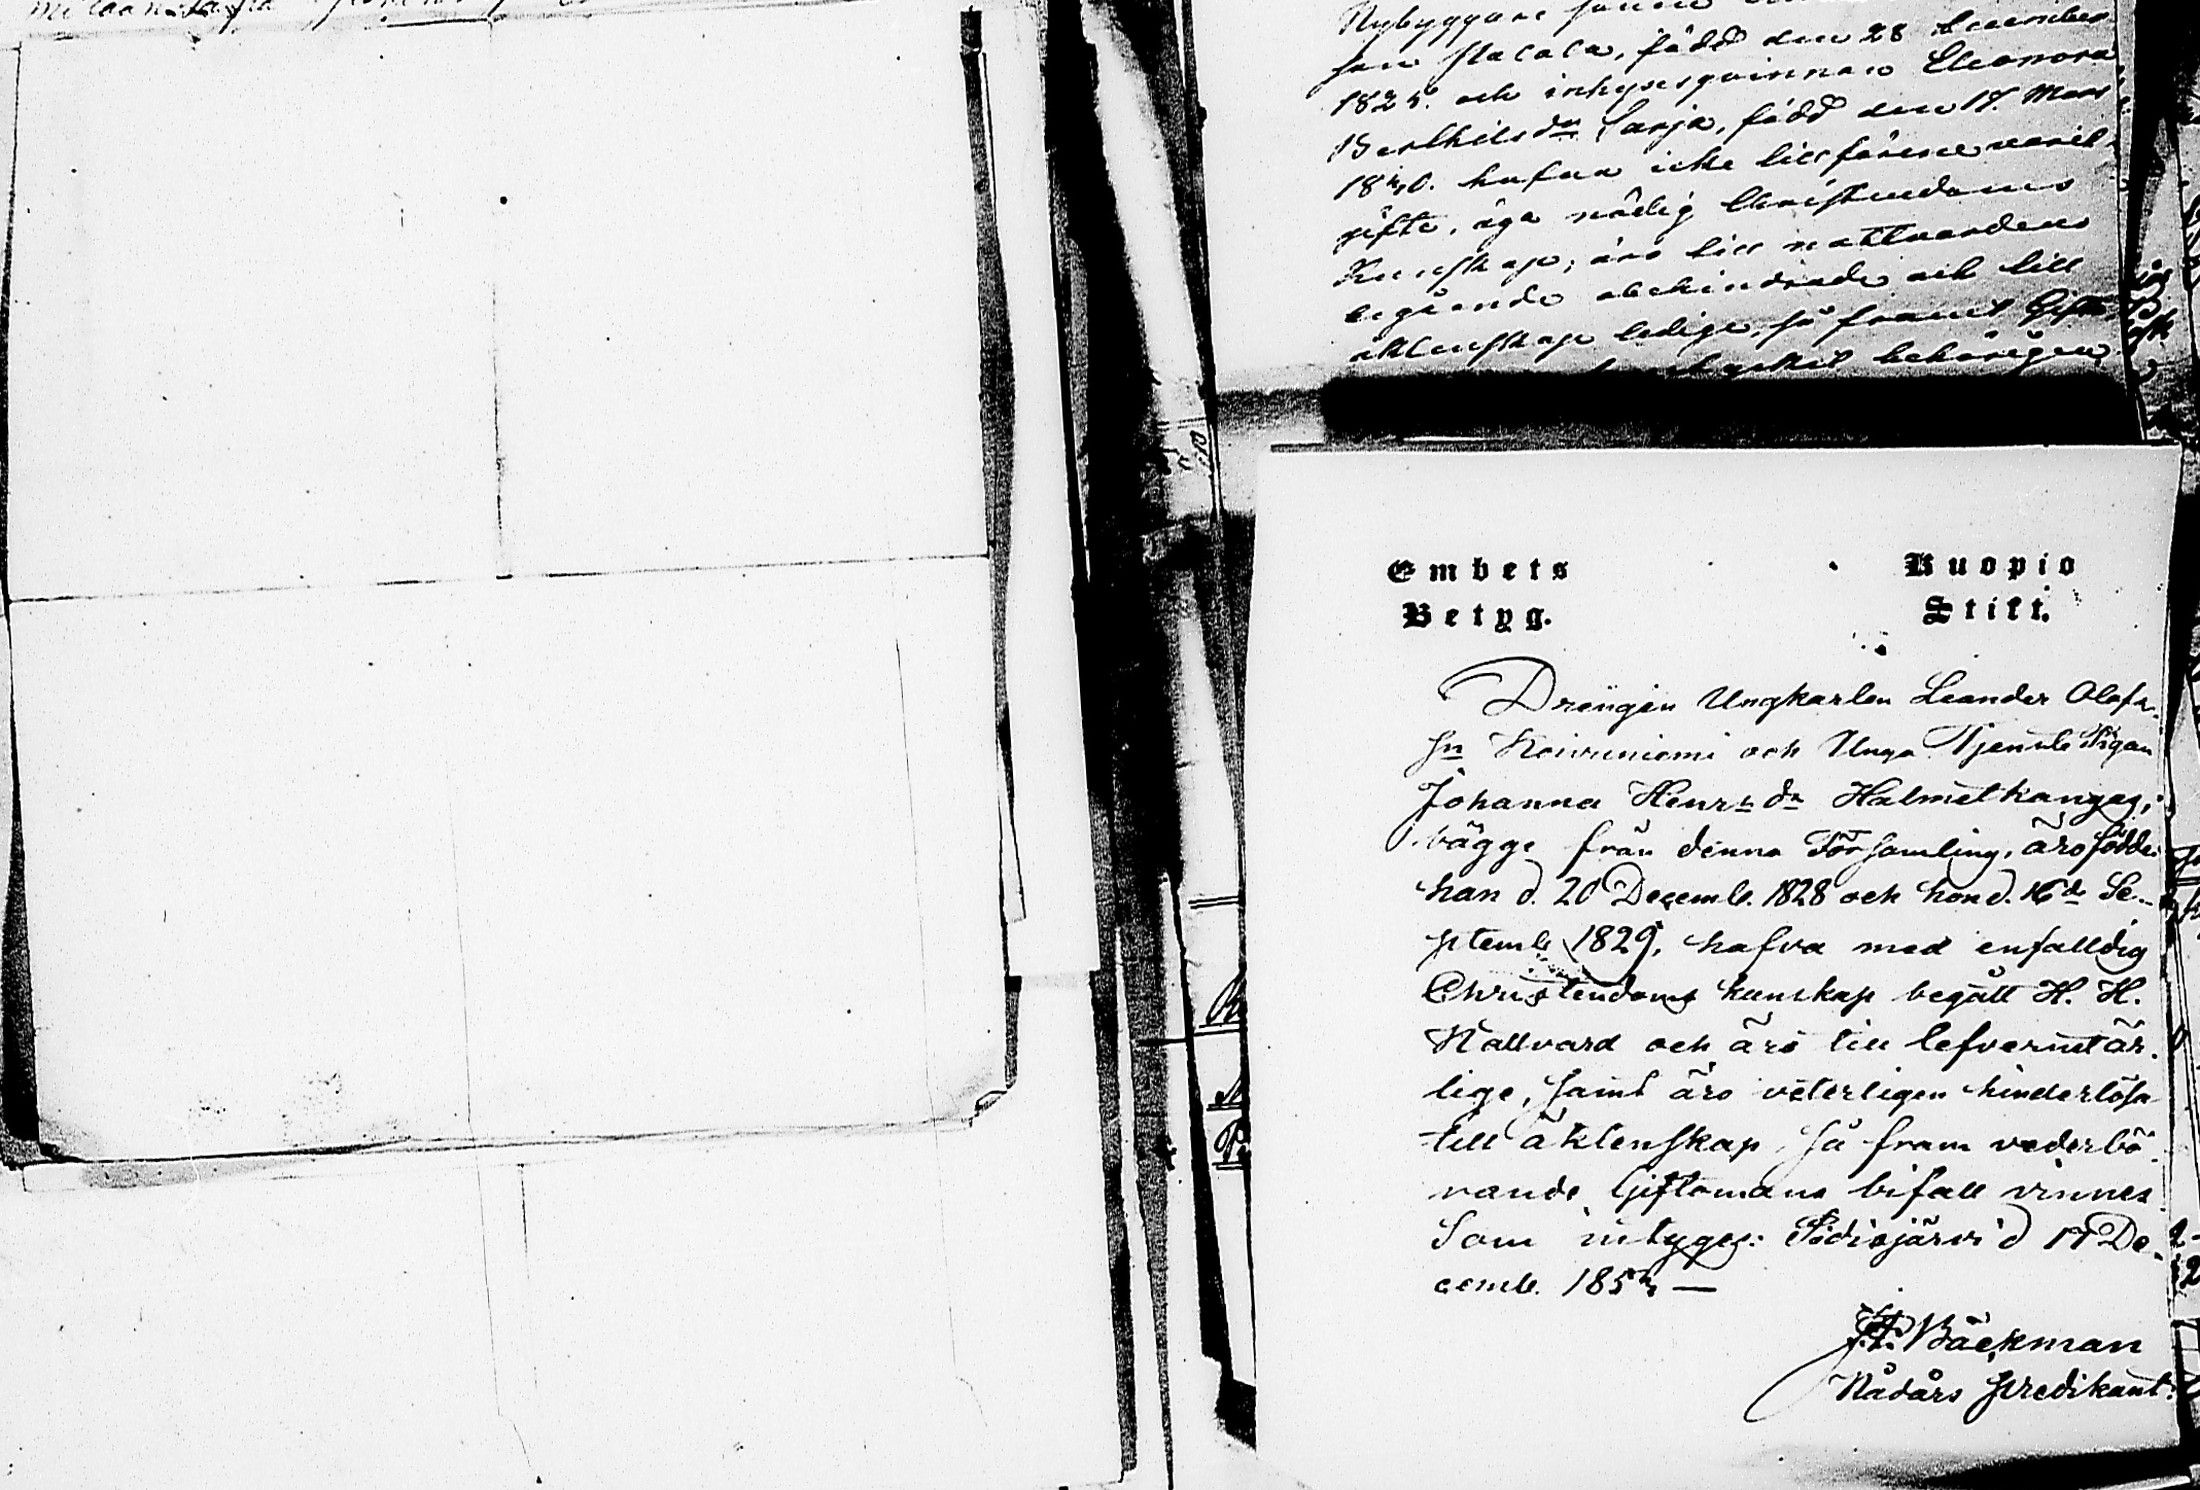 Nybyggare sonen
son Flacala, född den 28 December
1825. och inhysesqvinnan Eleonora
Berthilsdr Sarja, född den 17. Mars
1840. hafva icke tillförene varit
gifte, äga nödig Christendoms
Kunskap, äro till nattvardens
begående obehindrade och till
äktenskap ledige, så framt Gifto
behörigen
Embets
Betyg.
Kuopio
Stift.
Drängen Ungkarlen Leander Olofs
sn Koivuniemi och Unga Tjenste Pigan
Johanna Henrs dr Halmetkangas,
bägge från denna Församling, äro födde
han d. 20 Decemb. 1828 och hon d. 16de Se-
ptemb 1829, hafva med enfalldig
Christendoms kunskap begått H. H.
Nattvard och äro till lefvernet är-
lige, samt äro veterligen hinderlösa
till äktenskap, så fram vederbö-
rande Giftomans bifall vinnes
Som intygas: Pidisjärvi d 17 De-
cemb. 1854 —
Bäckman
Nådårs predikant.